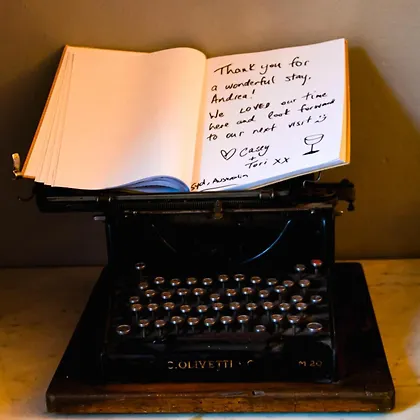 Thank you for
a wonderful stay,
Andrea!
We LOVED our time
here and look forward
to our next visit :)
♡ Casey
+
Tori xx
Syd, Australia
C. OLIVETTI & C.
M 20